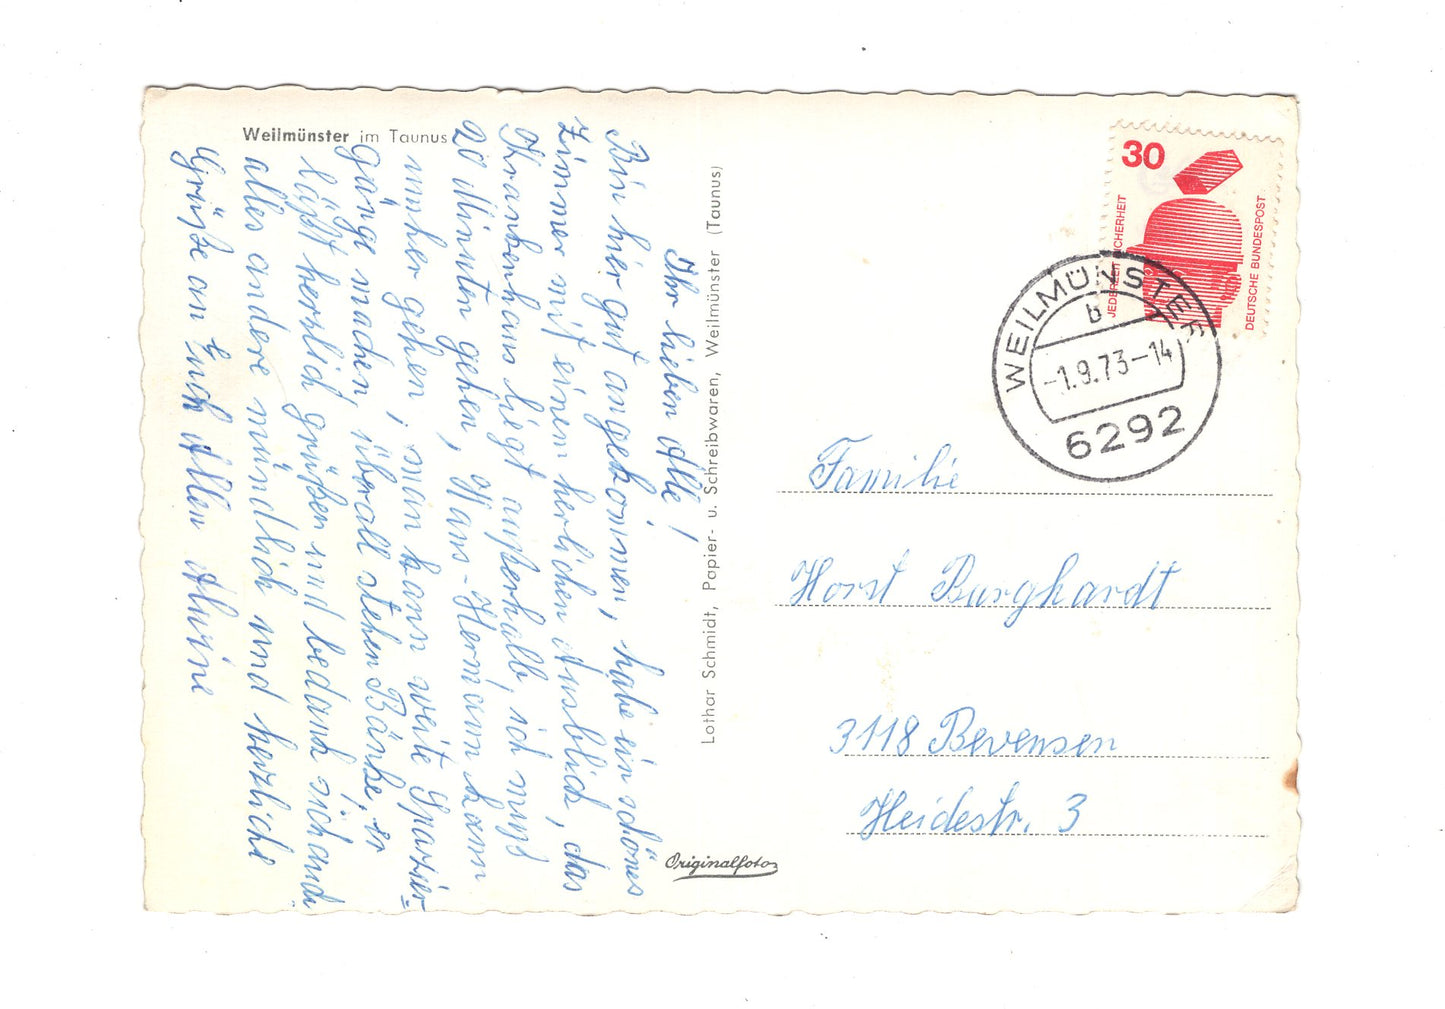 Weilmünster im Taunus
Ihr lieben Alle!
Bin hier gut angekommen, habe ein schönes
Zimmer mit einem herlichen Ausblick, das
Krankenhaus liegt außerhalb, ich muß
20 Minuten gehen, Hans-Hermann kann
umher gehen, man kann weite Spazier=
gänge machen, überall stehen Bänke, er
läßt herzlich grüßen und bedankt sich auch
alles andere mündlich und herzliche
Grüße an Euch Allen Alwine
Lothar Schmidt, Papier- u. Schreibwaren, Weilmünster (Taunus)
Originalfoto
30
JEDERZEIT SICHERHEIT
DEUTSCHE BUNDESPOST
WEILMÜNSTER
b
-1.9.73-14
6292
Familie
Horst Burghardt
3118 Bevensen
Heidestr. 3